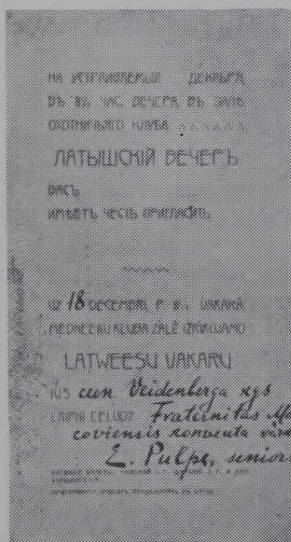 НА УСТРАИВАЕМЫЙ ДЕКАБРЯ
ВЪ 8½ ЧАС. ВЕЧЕРА ВЪ ЗАЛѢ
ОХОТНИЧЬЯГО КЛУБА
ЛАТЫШСКІЙ ВЕЧЕРЪ
ВАСЪ,
ИМѢЕТЪ ЧЕСТЬ ПРИГЛАСИТЬ
UZ 18 DECEMBRI, P. 8½ VAKARĀ
MEDNEEKU KLUBA ZĀLĒ IZRĪKOJAMO
LATWEEŠU VAKARU
JŪS ceen. Veidenberga kgs
LAIPNI EELUDZ Fraternitas
coviensis konventa vārdā
E. Pulpe, seniors